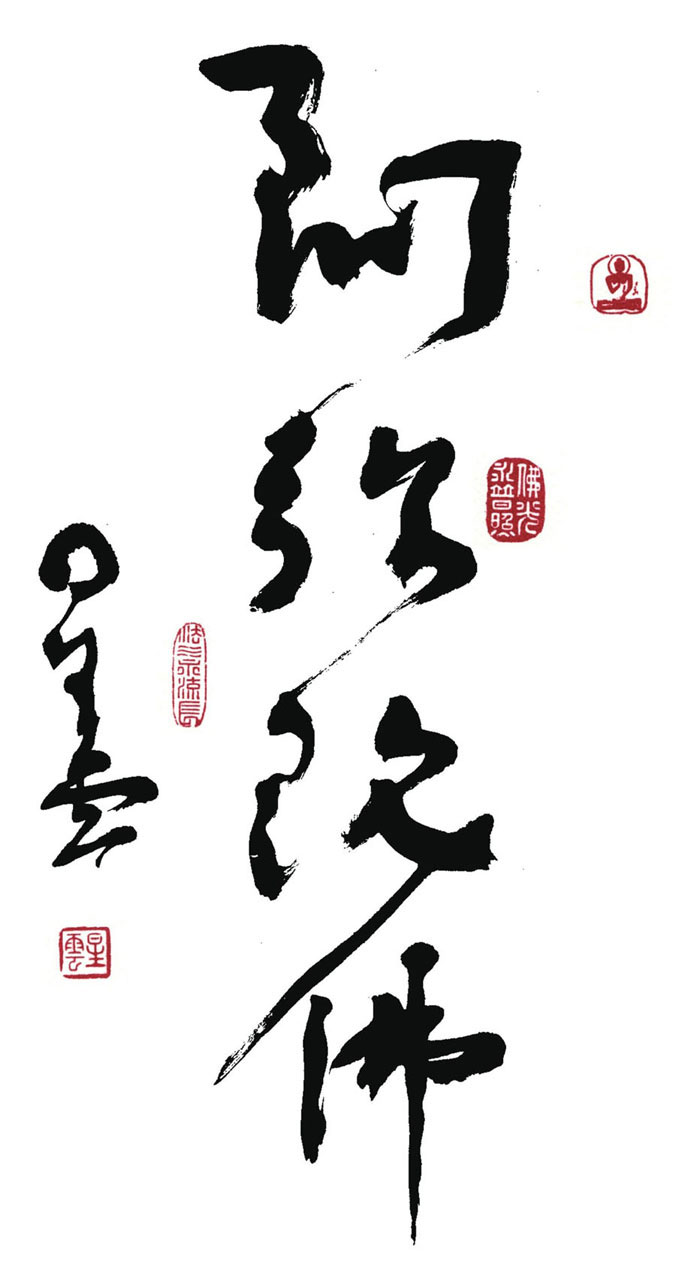 阿弥陀佛
佛光永普照
星雲
法水流長
星雲